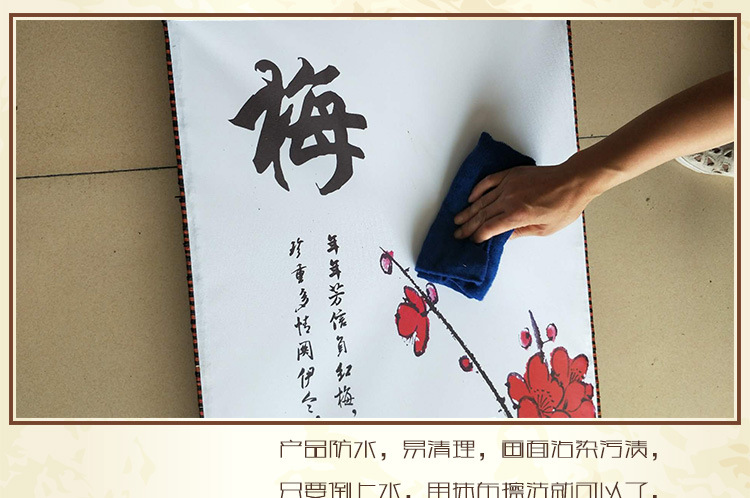 梅
年年芳信负红梅，
珍重多情関伊令。
产品防水，易清理，画面沾染污渍，
只要倒上水，用抹布擦洗就可以了。